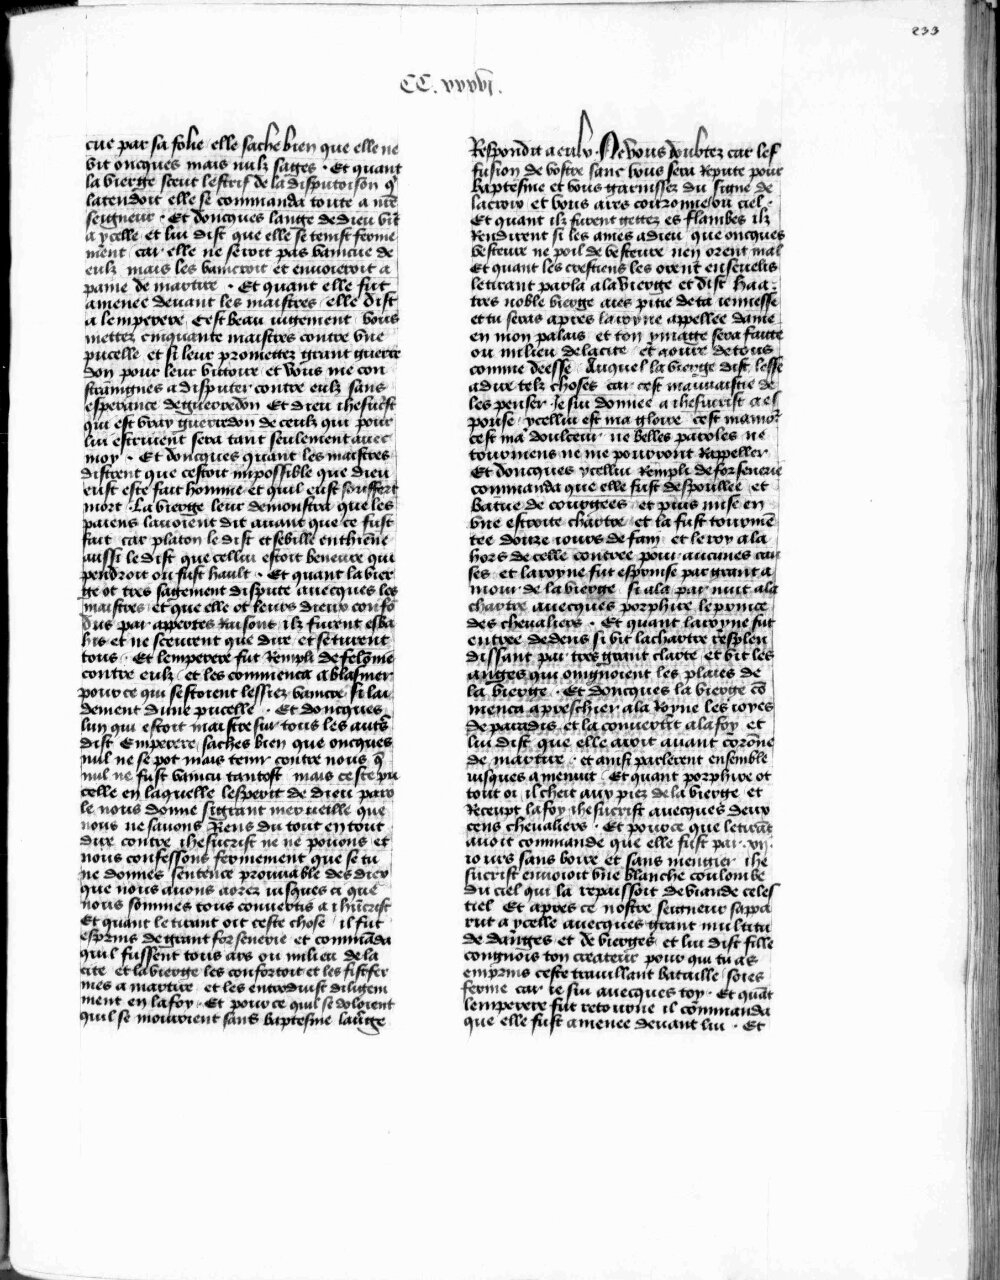 233
CC. xxxvi.
cue par sa folie elle sache bien que elle ne
vit oncques mais nulz sages . Et quant
la vierge sceut lestrif de la disputoison q̃
latendoit elle se commanda toute a nr̃e
seigneur . Et doncques lange de dieu vĩt
a ycelle et lui dist que elle se tenist ferme
ment car elle ne seroit pas vaincue de
eulz mais les vaincroit et envoieroit a
paine de martire . Et quant elle fut
amenee devant les maistres elle dist
a lemperere Cest beau iugement vous
mettez cinquante maistres contre vne
pucelle et si leur promettez grant guerre
don pour leur victoire et vous me con
straingnes a disputer contre eulz sans
esperance de guerredon Et dieu ihesucrist
qui est vray guerredon de ceulz qui pour
lui estrivent sera tant seulement avec
moy . Et doncques quant les maistres
distrent que cestoit impossible que dieu
eust este fait homme et quil eust souffert
mort . La vierge leur demonstra que les
paiens lavoient dit avant que ce fust
fait car platon le dist et sebille enthiene
aussi le dist que cellui estoit beneure qui
pendroit ou fust hault . Et quant la vier
ge ot tres sagement dispute avecques les
maistres et que elle ot leurs dieux confõ
dus par appertes raisons ilz furent esba
his et ne sceurent que dire et se turent
tous . Et lemperere fut rempli de felõnie
contre eulz et les commenca a blasmer
pour ce qui sestoient lessiez vaincre si lai
dement dune pucelle . Et doncques
lun qui estoit maistre sur tous les autr̃s
dist Emperere saches bien que oncques
nul ne se pot mais tenir contre nous q̃
nul ne fust vaincu tantost mais ceste pu
celle en laquelle lesperit de dieu paro
le nous donne si grant merveille que
nous ne savons riens du tout en tout
dire contre ihesucrist ne ne povons et
nous confessons fermement que se tu
ne donnes sentence prouvable des diex
que nous avons aorez iusques ci que
nous sommes tous convertis a ihũcrist
Et quant le tirant oit ceste chose il fut
espris de grant forsenerie et commãda
quil fussent tous ars ou milieu de la
cite et la vierge les confortoit et les fist fer
mes a martire et les introduist diligem
ment en la foy . Et pour ce quil se doloient
quil se mouroient sans baptesme la vierge
Respondit a eulx . Ne vous doubtez car lef
fusion de vostre sanc vous sera repute pour
baptesme et vous garnissez du signe de
la croix et vous aires couronne ou ciel .
Et quant ilz furent gettez es flambes ilz
rendirent si les ames a dieu que oncques
vesteure ne poil de vesteure nen orent mal
Et quant les crestiens les orent ensevelis
le tirant parla a la vierge et dist haa :
tres noble vierge aies pitie de ta iennesse
et tu seras apres la royne appellee dame
en mon palais et ton ymage sera faitte
ou milieu de la cite et aouree de tous
comme deesse Auquel la vierge dist lesse
a dire telz choses car cest mauvaistie de
les penser . Je sui donnee a ihesucrist a es
pouse ycellui est ma gloire cest mamor̃
cest ma doulceur ne belles paroles ne
tourmens ne me pourront rappeller
Et doncques ycellui rempli de forsenerie
commanda que elle fust despoullee et
batue de courgees et puis mise en
vne estroite chartre et la fust tourmẽ
tee douze iours de fain et le roy ala
hors de celle contree pour aucunes cau
ses et la royne fut esprinse par grant a
mour de la vierge si ala par nuit a la
chartre avecques porphire le prince
des chevaliers . Et quant la royne fut
entree dedens si vit la chartre resplen
dissant par tres grant clarte et vit les
anges qui oingnoient les plaies de
la vierge . Et doncques la vierge cõ
menca a preschier a la royne les ioyes
de paradis et la convertit a la foy et
lui dist que elle aroit avant corõne
de martire et ainsi parlerent ensemble
iusques a menuit Et quant porphire ot
tout oi il cheit aux piez de la vierge et
receupt la foy ihesucrist avecques deux
cens chevaliers . Et pource que le tirãt
avoit commande que elle fust par .xii.
iours sans boire et sans mengier ihe
sucrist envoioit vne blanche coulombe
du ciel qui la repaissoit de viande celes
tiel Et apres ce nostre seigneur sappa
rut a ycelle avecques grant multitu
de danges et de vierges et lui dist fille
congnois ton createur pour qui tu as
emprins ceste travillant bataille soies
ferme car ie sui avecques toy . Et quãt
lemperere fut retourne il cõmmanda
que elle fust amenee devant lui . Et